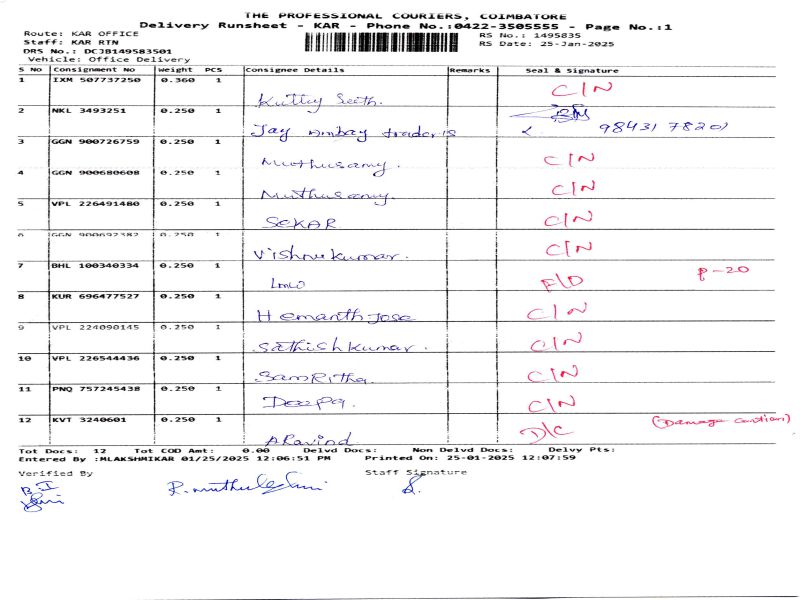 THE PROFESSIONAL COURIERS, COIMBATORE
Delivery Runsheet - KAR - Phone No.:0422-3505555 - Page No.:1
Route: KAR OFFICE RS No.: 1495835
Staff: KAR RTN RS Date: 25-Jan-2025
DRS No.: DC3B149583501
Vehicle: Office Delivery
S No Consignment No Weight PCS Consignee Details Remarks Seal & Signature
1 IXM 507737250 0.360 1
Kutty Seeth. C/N
2 NKL 3493251 0.250 1
Jay Ambay traders 9843178201
3 GGN 900726759 0.250 1
Muthusamy. C/N
4 GGN 900680608 0.250 1
Muthusamy. C/N
5 VPL 226491480 0.250 1
SEKAR C/N
6 GGN 900692382 0.250 1
Vishnukumar. C/N
7 BHL 100340334 0.250 1
F/D P-20
8 KUR 696477527 0.250 1
Hemanth Jose C/N
9 VPL 224090145 0.250 1
Sathishkumar. C/N
10 VPL 226544436 0.250 1
SamRitha. C/N
11 PNQ 757245438 0.250 1
Deepa. C/N
12 KVT 3240601 0.250 1
ARavind D/C (Damage
Tot Docs: 12 Tot COD Amt: 0.00 Delvd Docs: Non Delvd Docs: Delvy Pts:
Entered By :MLAKSHMIKAR 01/25/2025 12:06:51 PM Printed On: 25-01-2025 12:07:59
Verified By Staff Signature